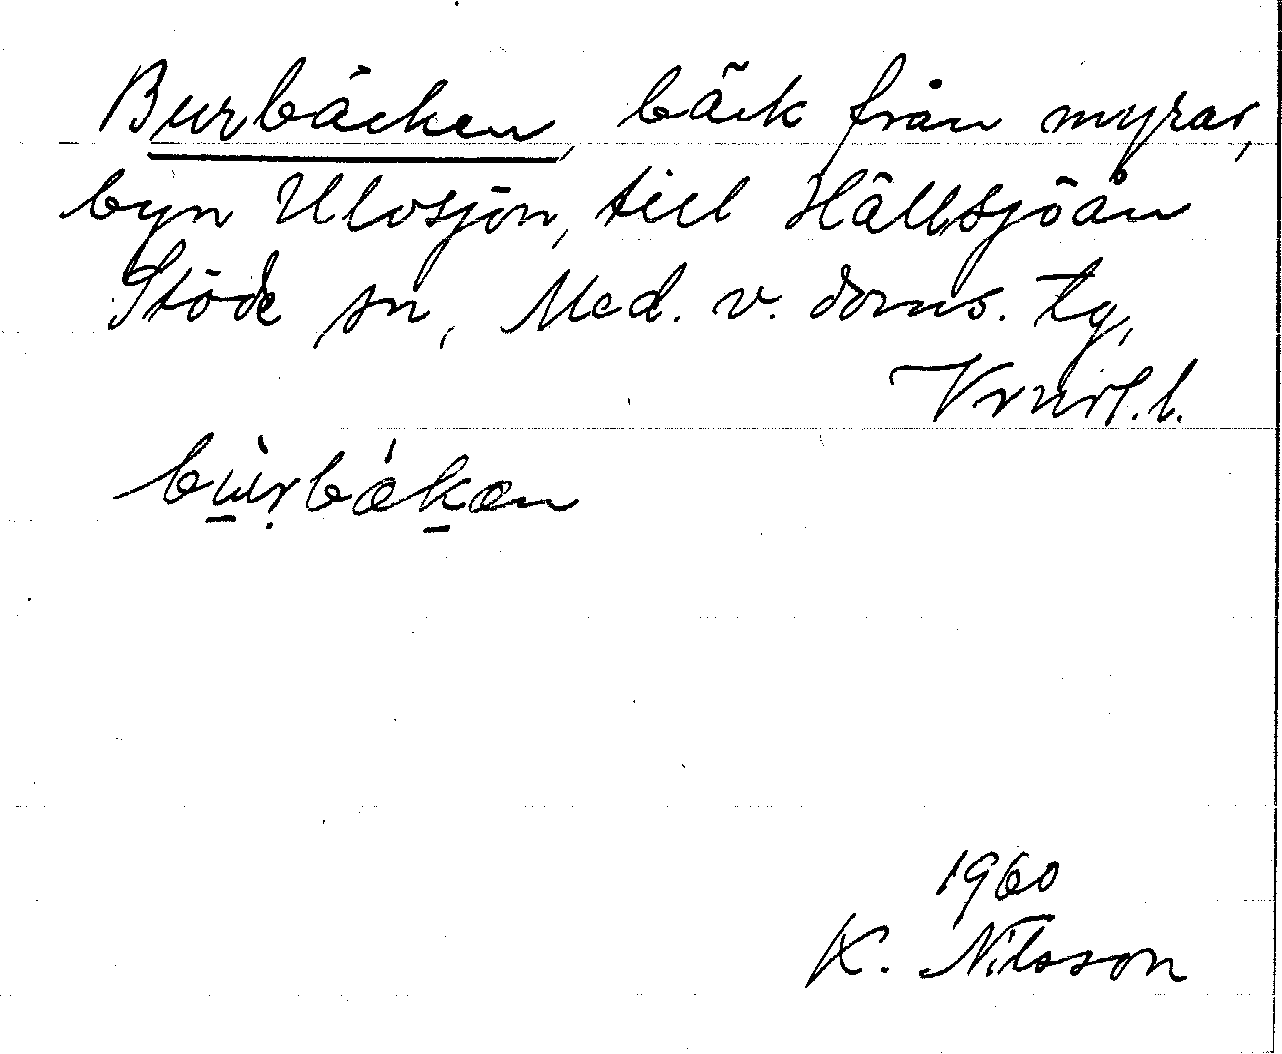 Burbäcken, bäck från myrar,
byn Ulvsjön, till Hällsjöån
Stöde sn, Med. v. doms. tg,
Vrnrl. l.
bùrbǽkæn
1960
K. Nilsson